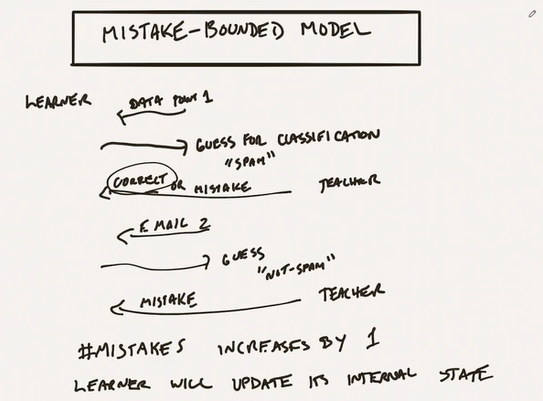 MISTAKE-BOUNDED MODEL
LEARNER
DATA POINT 1
GUESS FOR CLASSIFICATION
"SPAM"
CORRECT OR MISTAKE TEACHER
EMAIL 2
GUESS
"NOT-SPAM"
MISTAKE TEACHER
#MISTAKES INCREASES BY 1
LEARNER WILL UPDATE ITS INTERNAL STATE